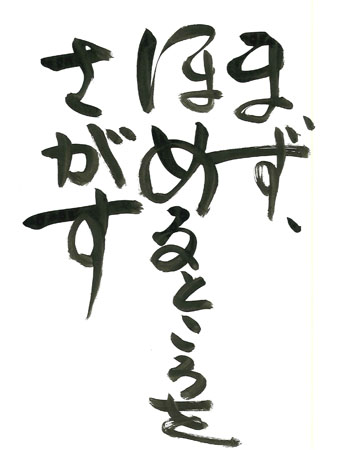 まず、
ほめるところを
さがす